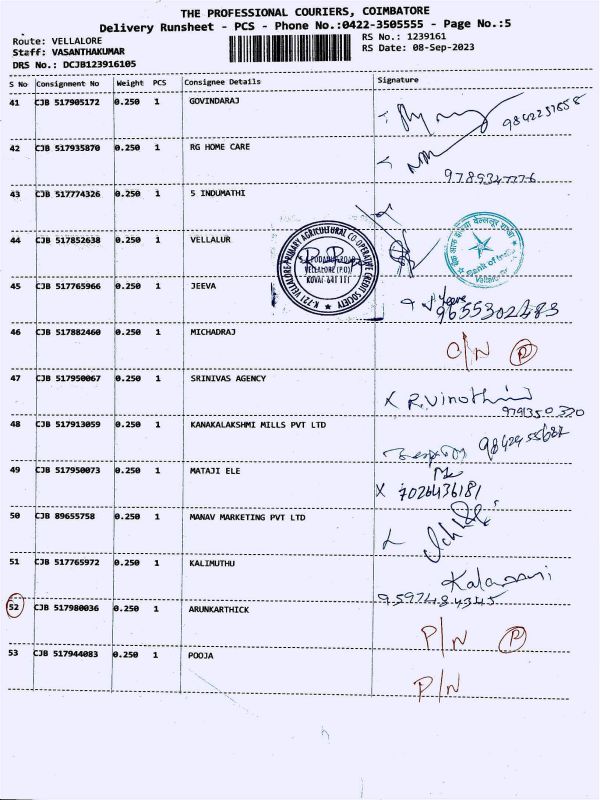 THE PROFESSIONAL COURIERS, COIMBATORE
Delivery Runsheet - PCS - Phone No.:0422-3505555 - Page No.:5
Route: VELLALORE
RS No.: 1239161
Staff: VASANTHAKUMAR
RS Date: 08-Sep-2023
DRS No.: DCJB123916105
S No Consignment No Weight PCS Consignee Details Signature
41 CJB 517905172 0.250 1 GOVINDARAJ
42 CJB 517935870 0.250 1 RG HOME CARE
43 CJB 517774326 0.250 1 S INDUMATHI
44 CJB 517852638 0.250 1 VELLALUR
K-721 VELLALORE PRIMARY AGRICULTURAL CO OPERATIVE CREDIT SOCIETY
VELLALORE (P.O)
KOVAI- 641 111
Bank of India
Vellalore
45 CJB 517765966 0.250 1 JEEVA
9655302483
46 CJB 517882460 0.250 1 MICHADRAJ C/N P
47 CJB 517950067 0.250 1 SRINIVAS AGENCY X R.Vinothini
9791350320
48 CJB 517913059 0.250 1 KANAKALAKSHMI MILLS PVT LTD
49 CJB 517950073 0.250 1 MATAJI ELE
X 7026436181
50 CJB 89655758 0.250 1 MANAV MARKETING PVT LTD
51 CJB 517765972 0.250 1 KALIMUTHU
52 CJB 517980036 0.250 1 ARUNKARTHICK P/N P
53 CJB 517944083 0.250 1 POOJA P/N